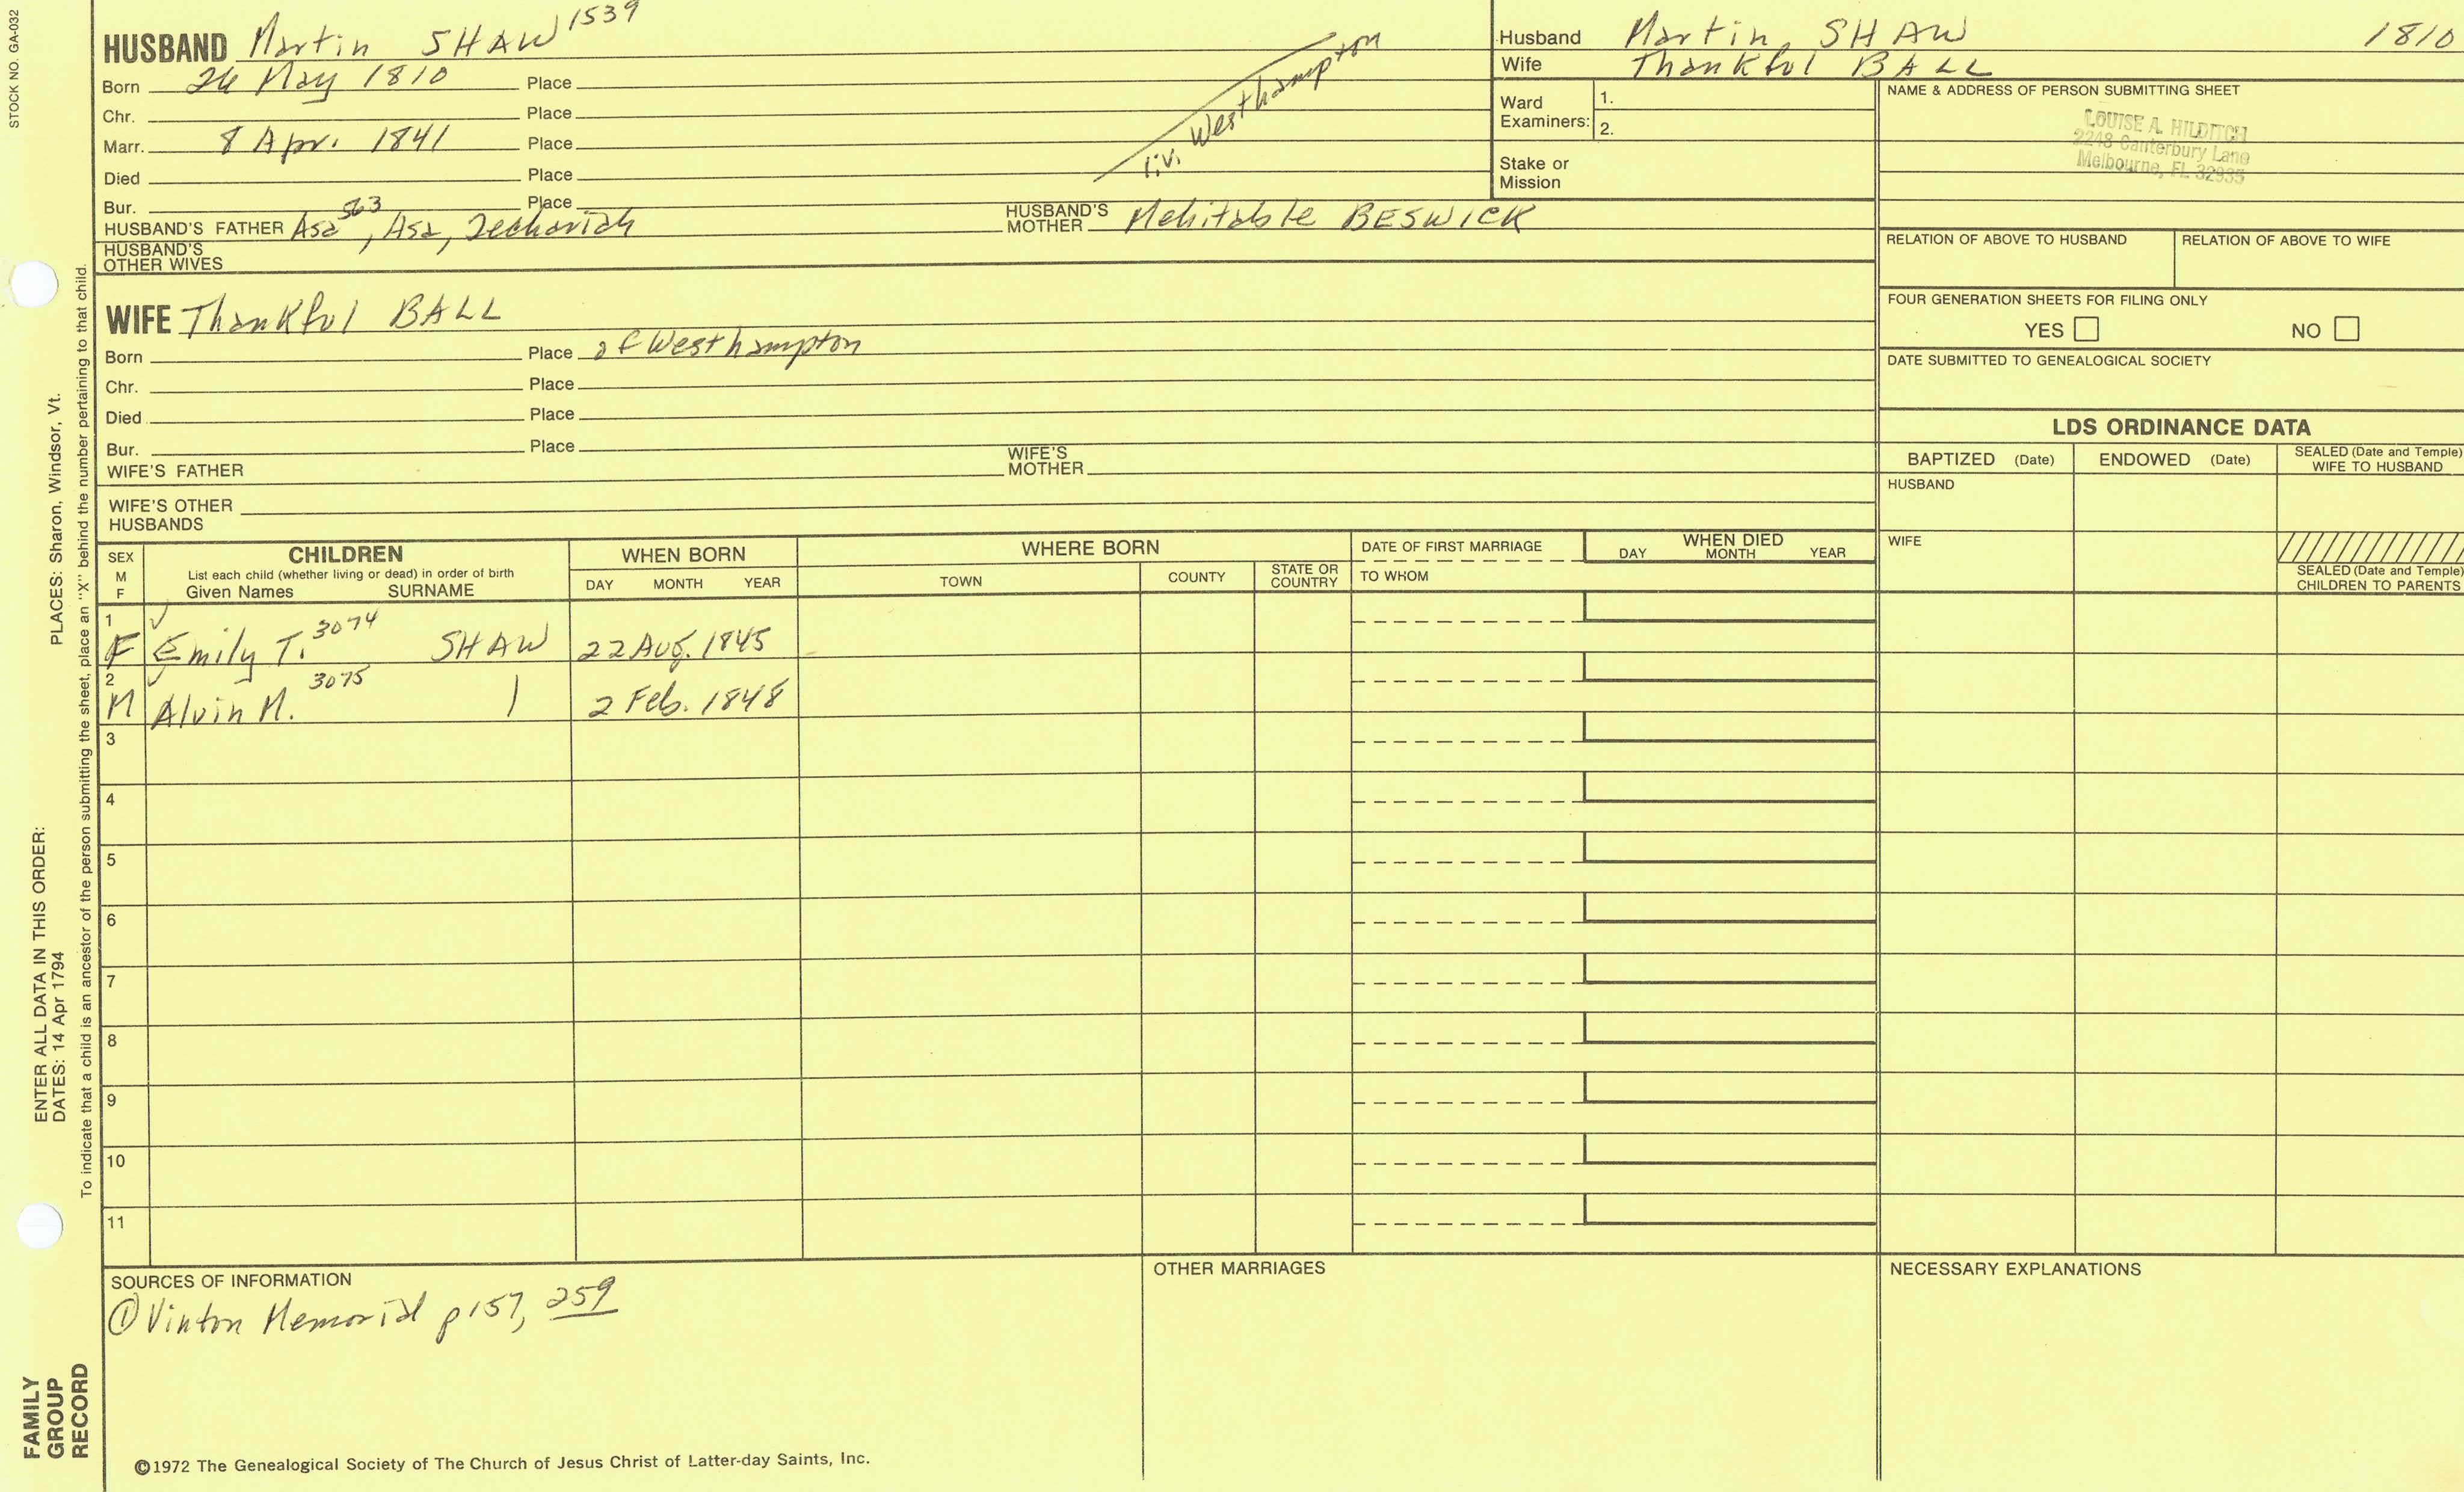 STOCK NO. GA-032
HUSBAND Martin SHAW 1539
Born 26 May 1810 Place
Chr. Place
Marr. 8 Apr. 1841 Place
Died Place
Bur. Place
liv. Westhampton
HUSBAND'S FATHER Asa 563, Asa, Zechariah HUSBAND'S MOTHER Mehitable BESWICK
HUSBAND'S OTHER WIVES
Husband Martin SHAW 1810
Wife Thankful BALL
Ward Examiners: 1.
2.
Stake or Mission
NAME & ADDRESS OF PERSON SUBMITTING SHEET
LOUISE A. HILDITCH
2248 Canterbury Lane
Melbourne, FL 32935
RELATION OF ABOVE TO HUSBAND RELATION OF ABOVE TO WIFE
FOUR GENERATION SHEETS FOR FILING ONLY
YES NO
DATE SUBMITTED TO GENEALOGICAL SOCIETY
WIFE Thankful BALL
Born Place of Westhampton
Chr. Place
Died Place
Bur. Place
WIFE'S FATHER WIFE'S MOTHER
WIFE'S OTHER HUSBANDS
LDS ORDINANCE DATA
BAPTIZED (Date) ENDOWED (Date) SEALED (Date and Temple) WIFE TO HUSBAND
HUSBAND
WIFE
SEALED (Date and Temple) CHILDREN TO PARENTS
SEX M F
CHILDREN
List each child (whether living or dead) in order of birth
Given Names SURNAME
WHEN BORN
DAY MONTH YEAR
WHERE BORN
TOWN COUNTY STATE OR COUNTRY
DATE OF FIRST MARRIAGE
TO WHOM
WHEN DIED
DAY MONTH YEAR
1 F Emily T. 3074 SHAW 22 Aug. 1845
2 M Alvin M. 3075 | 2 Feb. 1848
3
4
5
6
7
8
9
10
11
SOURCES OF INFORMATION
① Vinton Memorial p157, 259
OTHER MARRIAGES
NECESSARY EXPLANATIONS
©1972 The Genealogical Society of The Church of Jesus Christ of Latter-day Saints, Inc.
FAMILY GROUP RECORD
ENTER ALL DATA IN THIS ORDER:
DATES: 14 Apr 1794
PLACES: Sharon, Windsor, Vt.
To indicate that a child is an ancestor of the person submitting the sheet, place an "X" behind the number pertaining to that child.